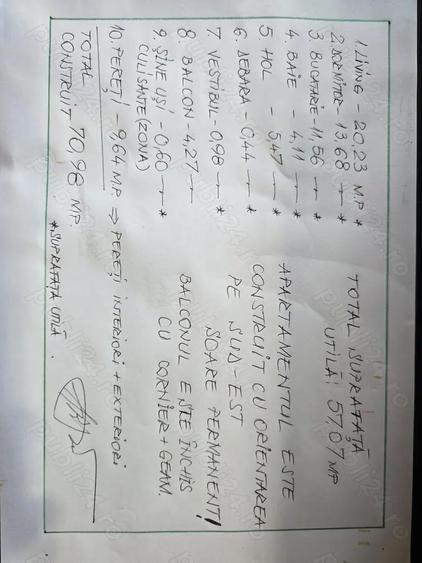 1. LIVING - 20,23 M.P *
2. DORMITOR - 13,68 —"— *
3. BUCATARIE - 11,56 —"— *
4. BAIE - 4,11 —"— *
5 HOL - 5,47 —"— *
6. DEBARA - 0,44 —"— *
7. VESTIBUL - 0,98 —"— *
8. BALCON - 4,27 —"—
9. ȘINE UȘI - 0,60 —"— *
CULISANTE (ZONA)
10. PEREȚI - 9,64 M.P. ⇒ PEREȚI INTERIORI + EXTERIORI
TOTAL
CONSTRUIT 70,98 MP.
* SUPRAFAȚĂ UTILĂ.
TOTAL SUPRAFAȚĂ
UTILĂ: 57,07 MP
APARTAMENTUL ESTE
CONSTRUIT CU ORIENTAREA
PE SUD-EST
SOARE PERMANENT!
BALCONUL ESTE ÎNCHIS
CU CORNIER + GEAM.
publi24.ro